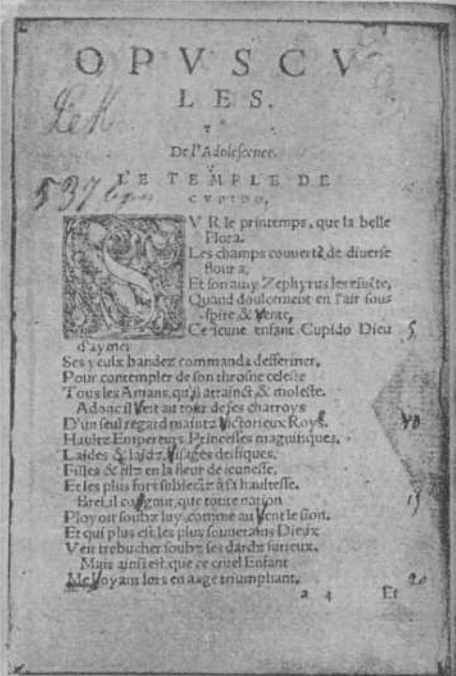 OPVSCV
LES.
De l'Adolescence.
LE TEMPLE DE
CVPIDO.
SVR le printemps, que la belle
Flora,
Les champs couvertz de diverse
flour a,
Et son amy Zephyrus les esvëte,
Quand doulcement en l'air sous
spire & Vente,
Ce ieune enfant Cupido Dieu 5
d'aymer
Ses yeulx bandez commanda desfermer,
Pour contempler de son throsne celeste
Tous les Amans, qu'il attainct & moleste.
Adonc il Veit au tour de ses charroys
D'un seul regard maintz Victorieux Roys, 10
Haultz Empereurs, Princesses magnifiques,
Laides & laidz, Visages deifiques,
Filles & filz en la fleur de ieunesse,
Et les plus fors subiectz à sa haultesse.
Brief, il congnut, que toute nation 15
Ployoit soubz luy, comme au Vent le sion.
Et qui plus est, les plus souverains Dieux
Veit trebucher soubz ses dardz furieux.
Mais ainsi est que ce cruel Enfant
Me Voyant lors en aage triumphant, 20
a 4 Et